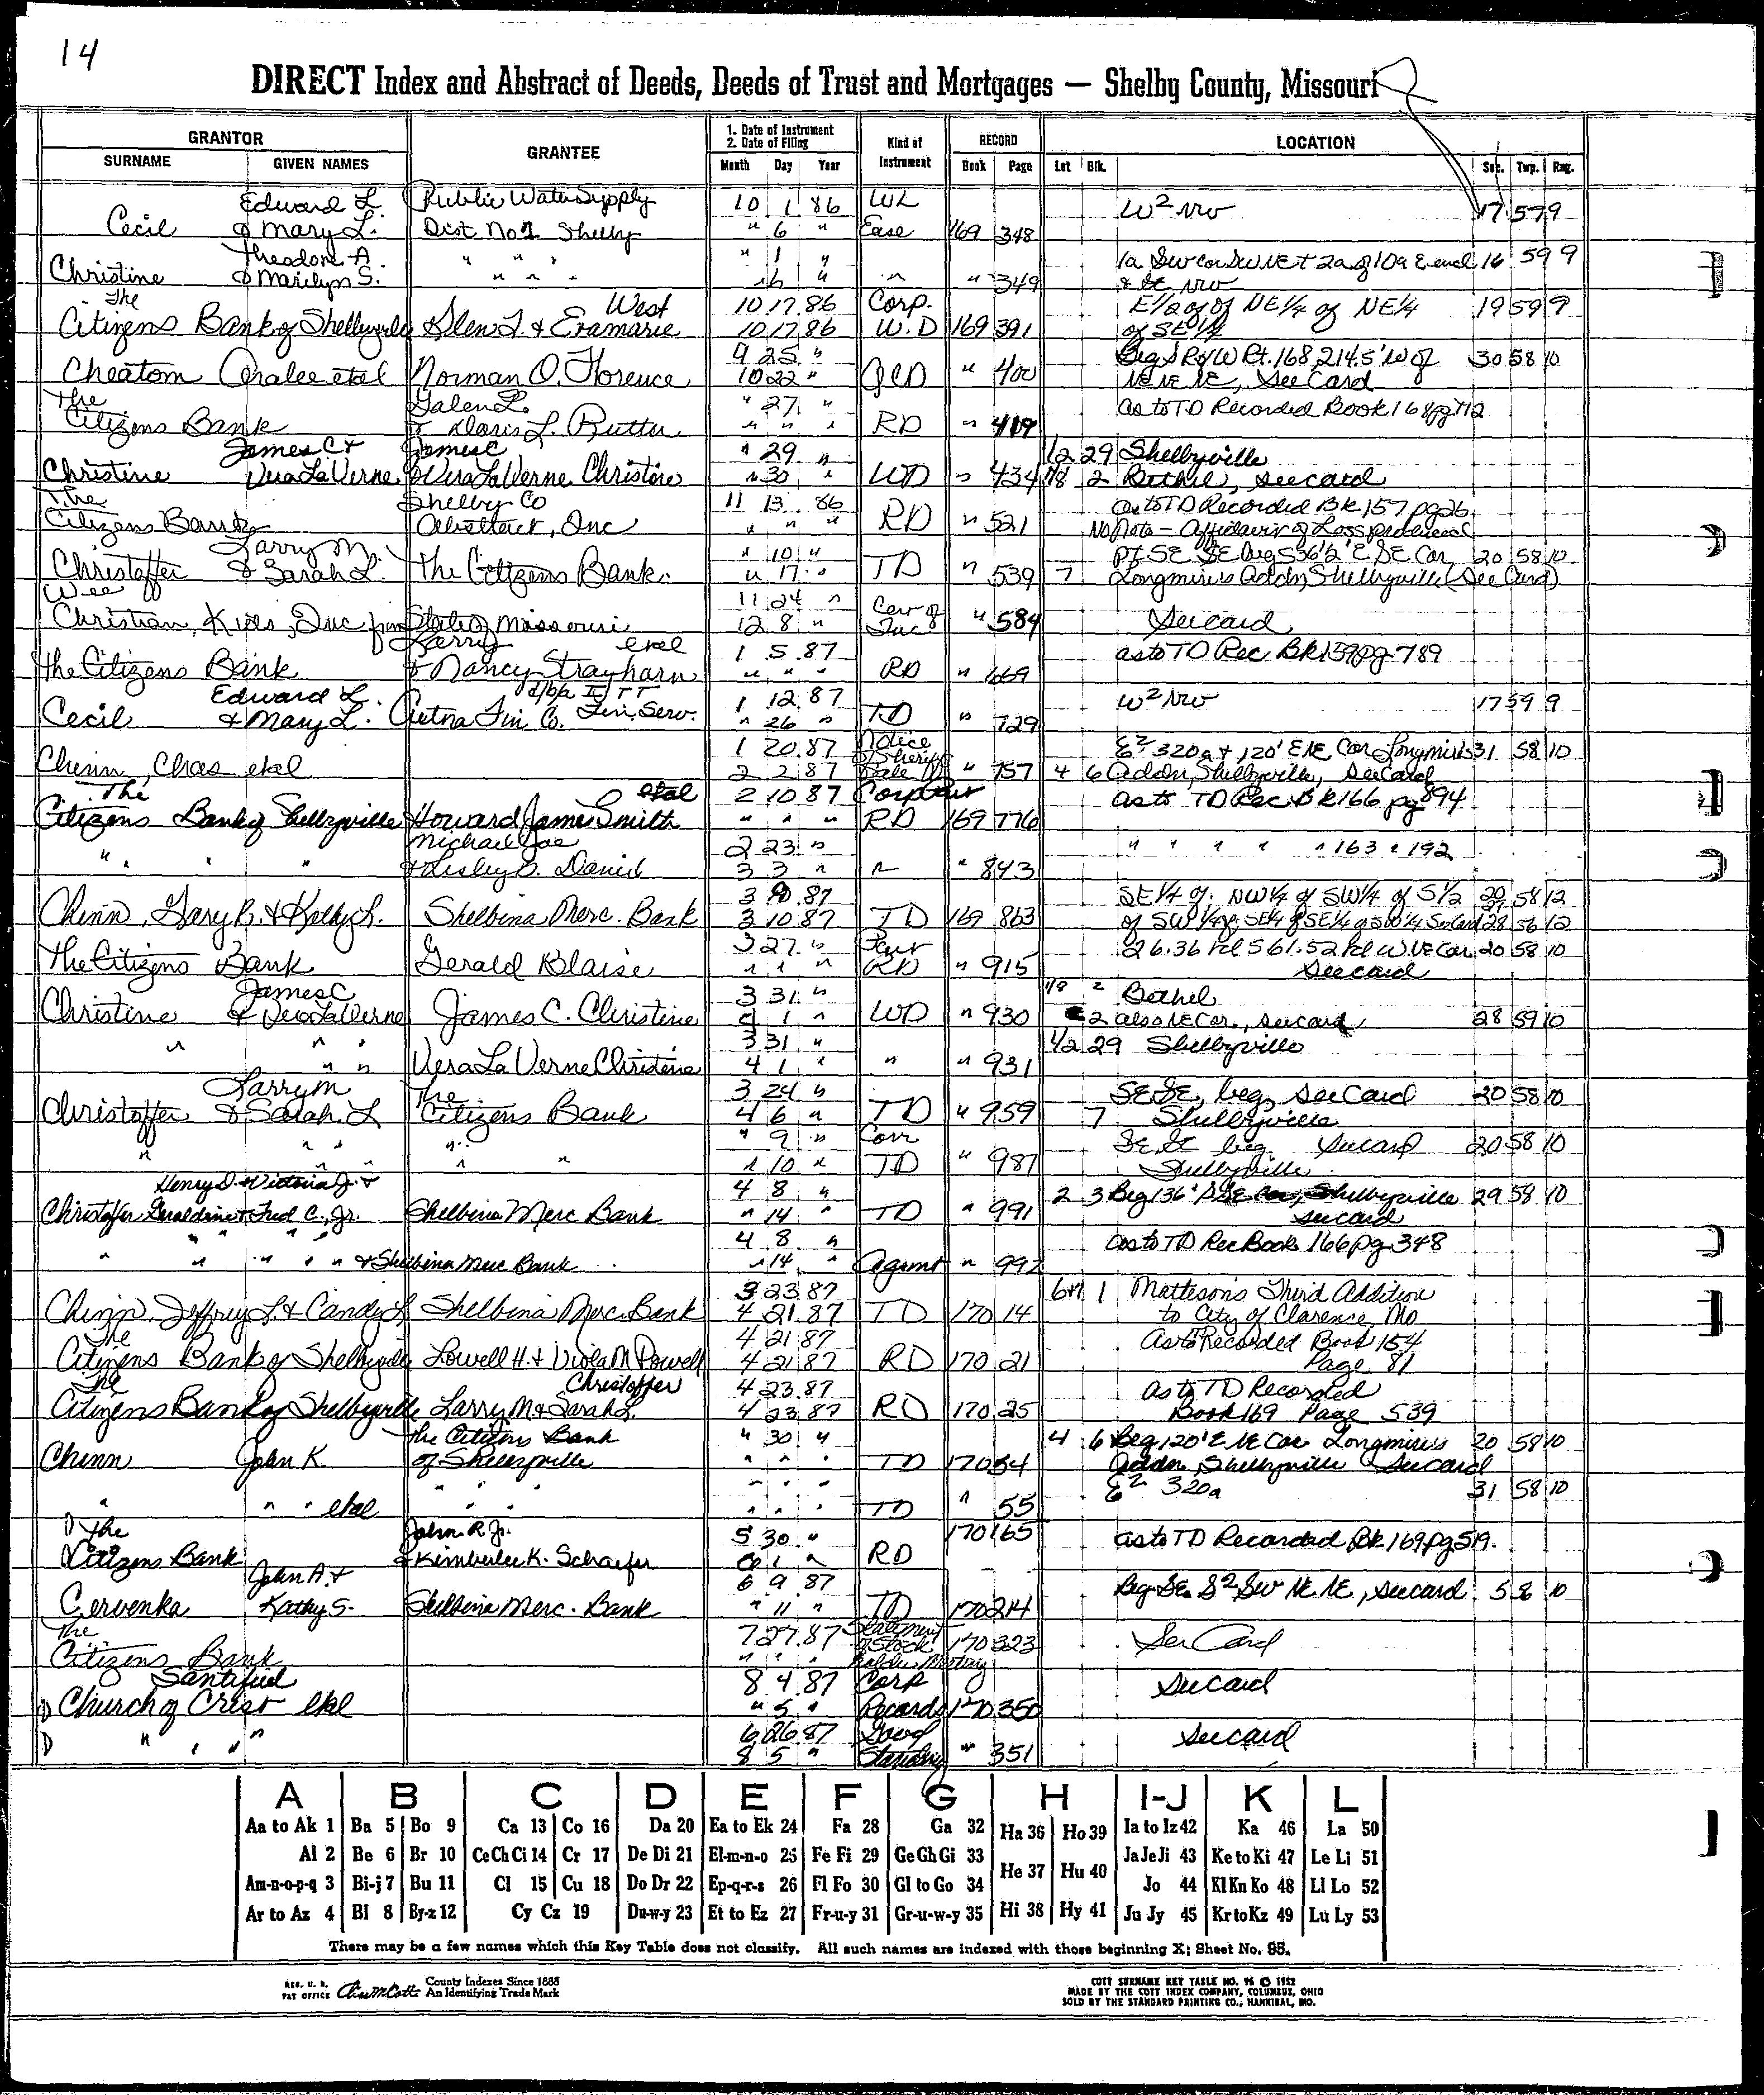 14
DIRECT Index and Abstract of Deeds, Deeds of Trust and Mortgages — Shelby County, Missouri
GRANTOR GRANTEE 1. Date of Instrument 2. Date of Filing Kind of Instrument RECORD LOCATION
SURNAME GIVEN NAMES Month Day Year Book Page Lot Blk. Sec. Twp. Rng.
Edward L. Public Water Supply 10 1 86 WL W² NW 17 59 9
Cecil & Mary L. Dist No 1 Shelby " 6 " Ease 169 348
Theodore A. " " " " 1 " 1a SW cor SW NE + 2a of 10a E end 16 59 9
Christine & Marilyn S. " " " " 6 " " " 349 & SE NW
The West 10 17 86 Corp. E 1/2 of of NE 1/4 of NE 1/4 19 59 9
Citizens Bank of Shelbyville Glen L. & Eramarie 10 17 86 W.D 169 391 of SE 1/4
9 25 " Beg S R of W Rt. 168, 214.5' W of 30 58 10
Cheatom Oralee etal Norman O. Florence 10 22 " QCD " 400 NE NE NE, See Card
The Galen L. " 27 " as to TD Recorded Book 168 pg 712
Citizens Bank & Doris L. Rutter " " " RD " 419
James C + James C " 29 " 1/2 29 Shelbyville
Christine Vera LaVerne & Vera LaVerne Christine " 30 " WD " 434 7/8 2 Bethel, see card
The Shelby Co 11 13 86 as to TD Recorded Bk 157 pg 26
Citizens Bank Abstract, Inc " " " RD " 521 No Note - Affidavit of Loss produced
Larry M. " 10 " pt SE SE beg S 36 1/2' E SE Cor 20 58 10
Christoffer & Sarah L. The Citizens Bank. " 17 " TD " 539 7 Longmire's Addn, Shelbyville (See Card)
Wee 11 24 " Cer of
Christian, Kids, Inc from State of Missouri 12 8 " Inc " 584 See card
Larry etal 1 5 87 as to TD Rec Bk 159 pg 789
The Citizens Bank & Nancy Strayhorn " " " RD " 669
Edward L. d/b/a ITT 1 12 87 W² NW 17 59 9
Cecil & Mary L. Aetna Fin Co. Fin. Serv. " 26 " TD " 729
1 20 87 Notice of Sheriff E² 320a + 120' E NE Cor Longmire's 31 58 10
Chinn, Chas etal 2 2 87 Sale " 757 4 6 Addn, Shelbyville, See Card
The etal 2 10 87 as to TD Rec Bk 166 pg 894
Citizens Bank of Shelbyville Howard James Smith " " " RD 169 776
Michael Joe 2 23 " " " " " " 163 " 192
" " " & Lesley D. David 3 3 " " " 843
3 9 87 SE 1/4 of NW 1/4 of SW 1/4 of S 1/2 58 12
Chinn, Gary R. & Kelly L. Shelbina Merc. Bank 3 10 87 TD 169 863 of SW 1/4 of SE 1/4 of SE 1/4 of SW 1/4 See Card 28 56 12
3 27 " Part 26.36 rd S 61.52 rd W NE Cor 20 58 10
The Citizens Bank Gerald Blaise " " " RD " 915 See card
James C 3 31 " 1/8 2 Bethel
Christine & Vera LaVerne James C. Christine 4 1 " WD " 930 2 also NE Cor., see card 28 59 10
" " " 3 31 " 1/2 29 Shelbyville
" " Vera La Verne Christine 4 1 " " " 931
Larry M The 3 24 " SE SE, beg, See Card 20 58 10
Christoffer & Sarah L Citizens Bank 4 6 " TD " 959 7 Shelbyville
" " " " " 9 " Corr SE SE beg. See card 20 58 10
" " " " " 10 " TD " 987 Shelbyville
Henry D. & Victoria J. + 4 8 " 2 3 Beg 136' S SE Cor, Shelbyville 29 58 10
Christoffer Geraldine + Fred C., Jr. Shelbina Merc Bank " 14 " TD " 991 see card
" " " " 4 8 " as to TD Rec Book 166 pg 348
" " " " " & Shelbina Merc Bank " 14 " Agmnt " 992
3 23 87 6+7 1 Matteson's Third Addition
Chinn, Jeffrey L. & Candy L Shelbina Merc. Bank 4 21 87 TD 170 14 to City of Clarence, Mo
The 4 21 87 As to Recorded Book 154
Citizens Bank of Shelbyville Lowell H. & Viola M Powell 4 21 87 RD 170 21 Page 81
The Christoffer 4 23 87 as to TD Recorded
Citizens Bank of Shelbyville Larry M & Sarah L. 4 23 87 RD 170 25 Book 169 Page 539
The Citizens Bank " 30 " 4 6 Beg 120' E NE Cor Longmire's 20 58 10
Chinn John K of Shelbyville " " " TD 170 54 Addn, Shelbyville See card
" " " " " " E² 320a 31 58 10
" " " etal " " " TD " 55
The John R. Jr. 5 30 " 170 165 as to TD Recorded Bk 169 Pg 519.
Citizens Bank & Kimberlee K. Schaefer 6 1 " RD
John A. + 6 9 87 Beg SE S² SW NE NE, see card 5 8 10
Cervenka Kathy S. Shelbina Merc. Bank " 11 " TD 170 214
The 7 27 87 Statement of Stock 170 323 See Card
Citizens Bank " " " Holder Meeting
Santified 8 4 87 Corp See card
Church of Crist etal " 5 " Records 170 350
6 26 87 Good See card
" " " 8 5 " Standing " 351
A B C D E F G H I-J K L
Aa to Ak 1 Ba 5 Bo 9 Ca 13 Co 16 Da 20 Ea to Ek 24 Fa 28 Ga 32 Ha 36 Ho 39 Ia to Iz 42 Ka 46 La 50
Al 2 Be 6 Br 10 Ce Ch Ci 14 Cr 17 De Di 21 El-m-n-o 25 Fe Fi 29 Ge Gh Gi 33 He 37 Hu 40 Ja Je Ji 43 Ke to Ki 47 Le Li 51
Am-n-o-p-q 3 Bi-j 7 Bu 11 Cl 15 Cu 18 Do Dr 22 Ep-q-r-s 26 Fl Fo 30 Gl to Go 34 Jo 44 Kl Kn Ko 48 Ll Lo 52
Ar to Az 4 Bl 8 By-z 12 Cy Cz 19 Du-w-y 23 Et to Ez 27 Fr-u-y 31 Gr-u-w-y 35 Hi 38 Hy 41 Ju Jy 45 Kr to Kz 49 Lu Ly 53
There may be a few names which this Key Table does not classify. All such names are indexed with those beginning X; Sheet No. 95.
REG. U. S. PAT OFFICE County Indexes Since 1888 An Identifying Trade Mark
COTT SURNAME KEY TABLE NO. 96 © 1952
MADE BY THE COTT INDEX COMPANY, COLUMBUS, OHIO
SOLD BY THE STANDARD PRINTING CO., HANNIBAL, MO.